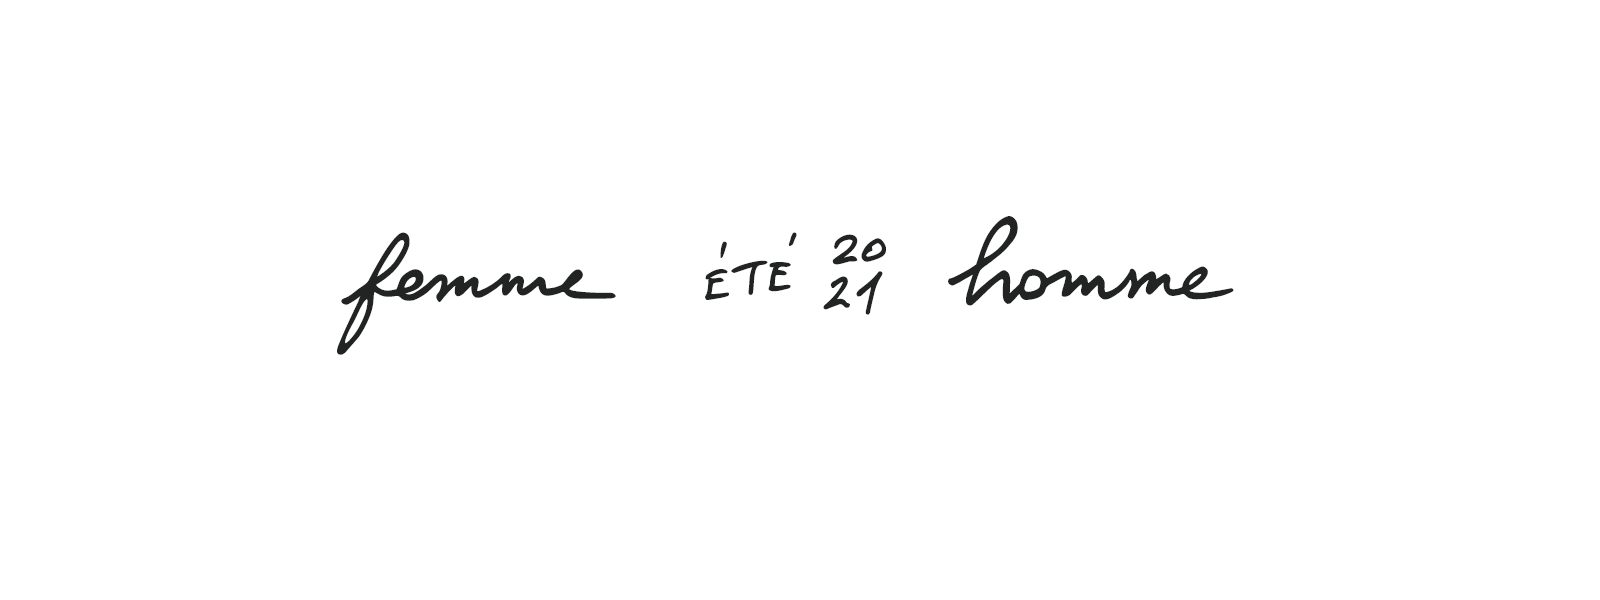 femme ÉTÉ 20 homme
21